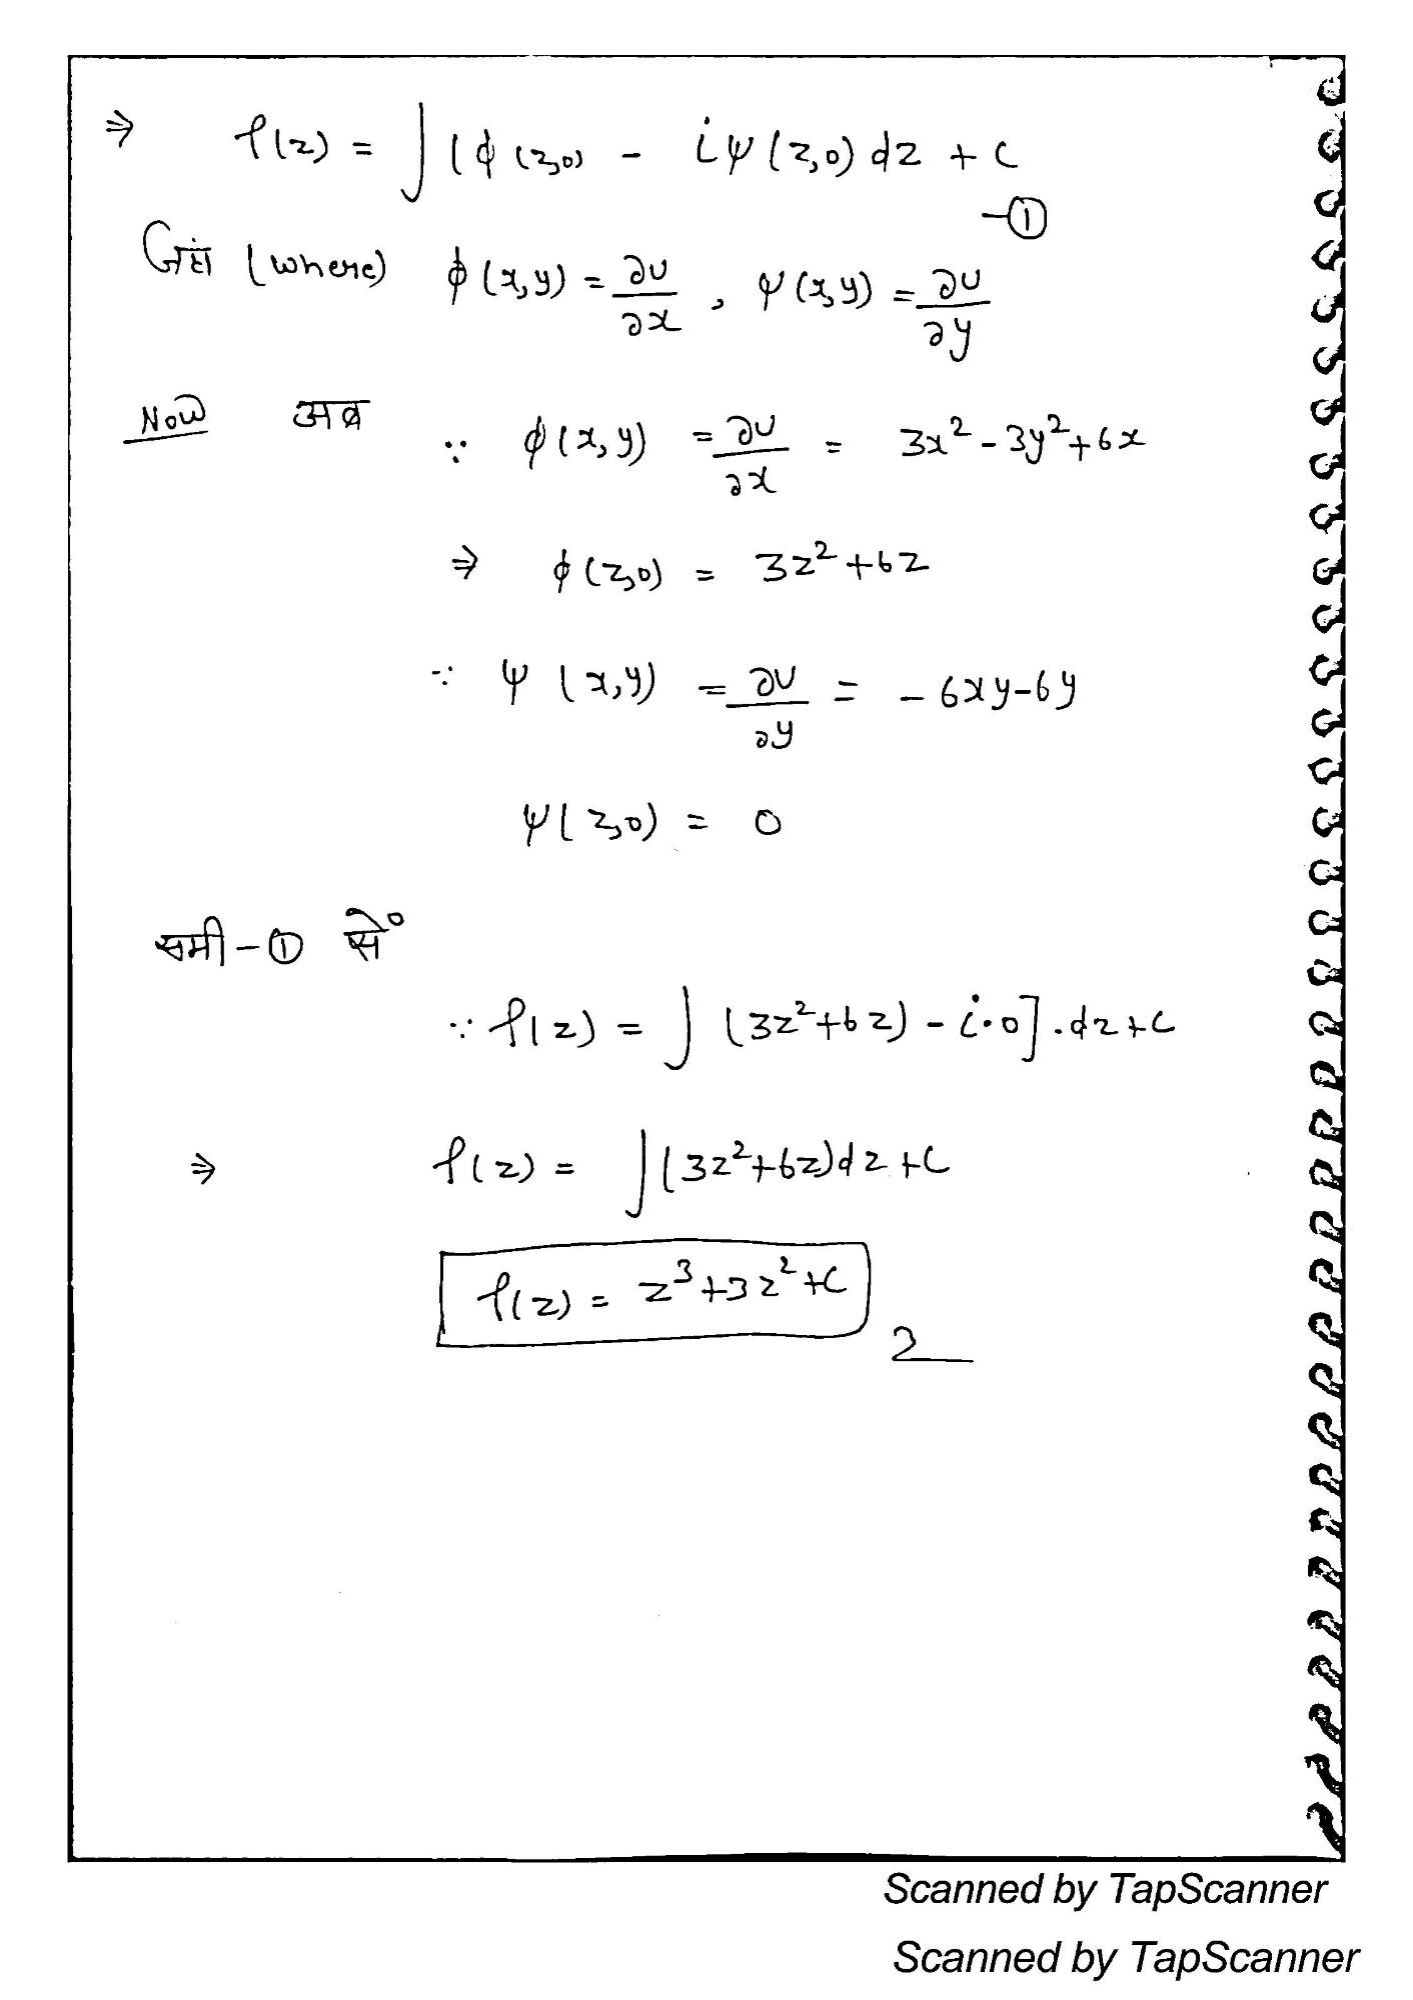 ⇒ f(z) = ∫ (ϕ(z,0) - iψ(z,0) dz + c
-①
जहां (where) ϕ(x,y) = ∂u/∂x , ψ(x,y) = ∂u/∂y
Now अब ∵ ϕ(x,y) = ∂u/∂x = 3x² - 3y² + 6x
⇒ ϕ(z,0) = 3z² + 6z
∵ ψ(x,y) = ∂u/∂y = - 6xy - 6y
ψ(z,0) = 0
समी - ① से०
∵ f(z) = ∫ (3z² + 6z) - i·0] . dz + c
⇒ f(z) = ∫ (3z² + 6z) dz + c
f(z) = z³ + 3z² + c
2
Scanned by TapScanner
Scanned by TapScanner